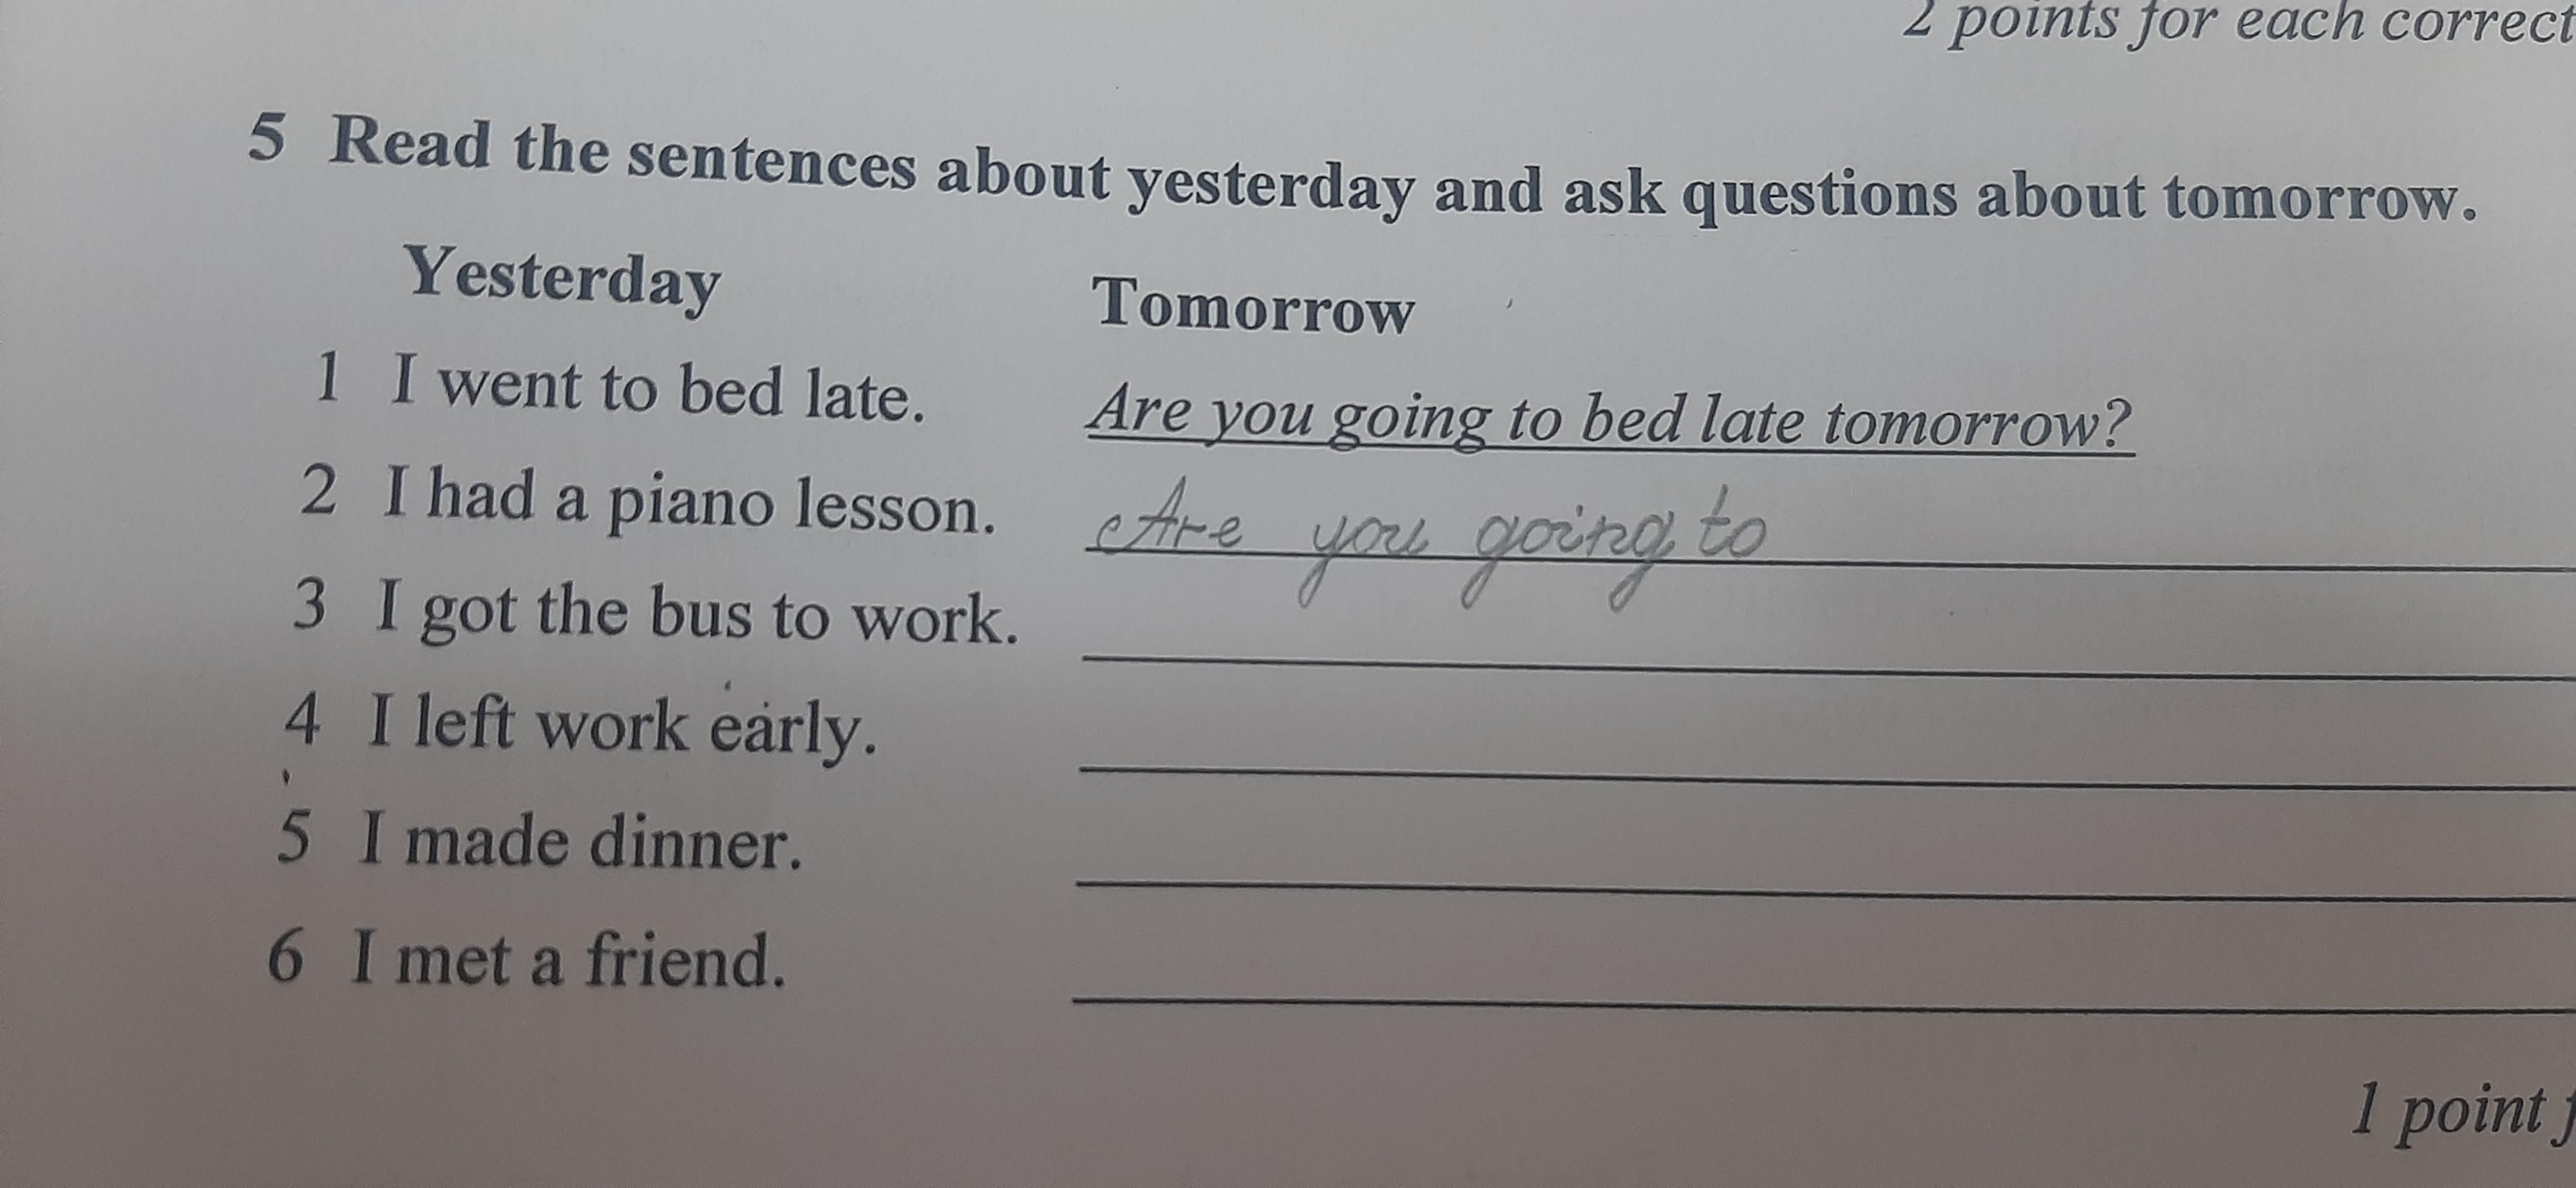 2 points for each correct
5 Read the sentences about yesterday and ask questions about tomorrow.
Yesterday Tomorrow
1 I went to bed late. Are you going to bed late tomorrow?
2 I had a piano lesson. Are you going to
3 I got the bus to work.
4 I left work early.
5 I made dinner.
6 I met a friend.
1 point f